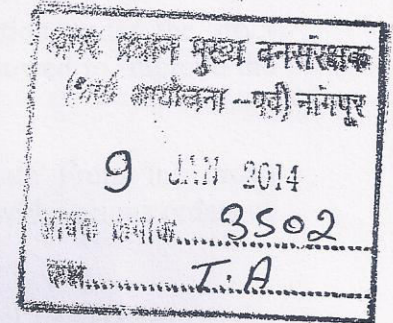 अपर प्रधान मुख्य वनसंरक्षक
(कार्य आयोजना --पूर्व) नागपूर
9 JAN 2014
आवक क्रमांक.... 3502
कक्ष.... T.A